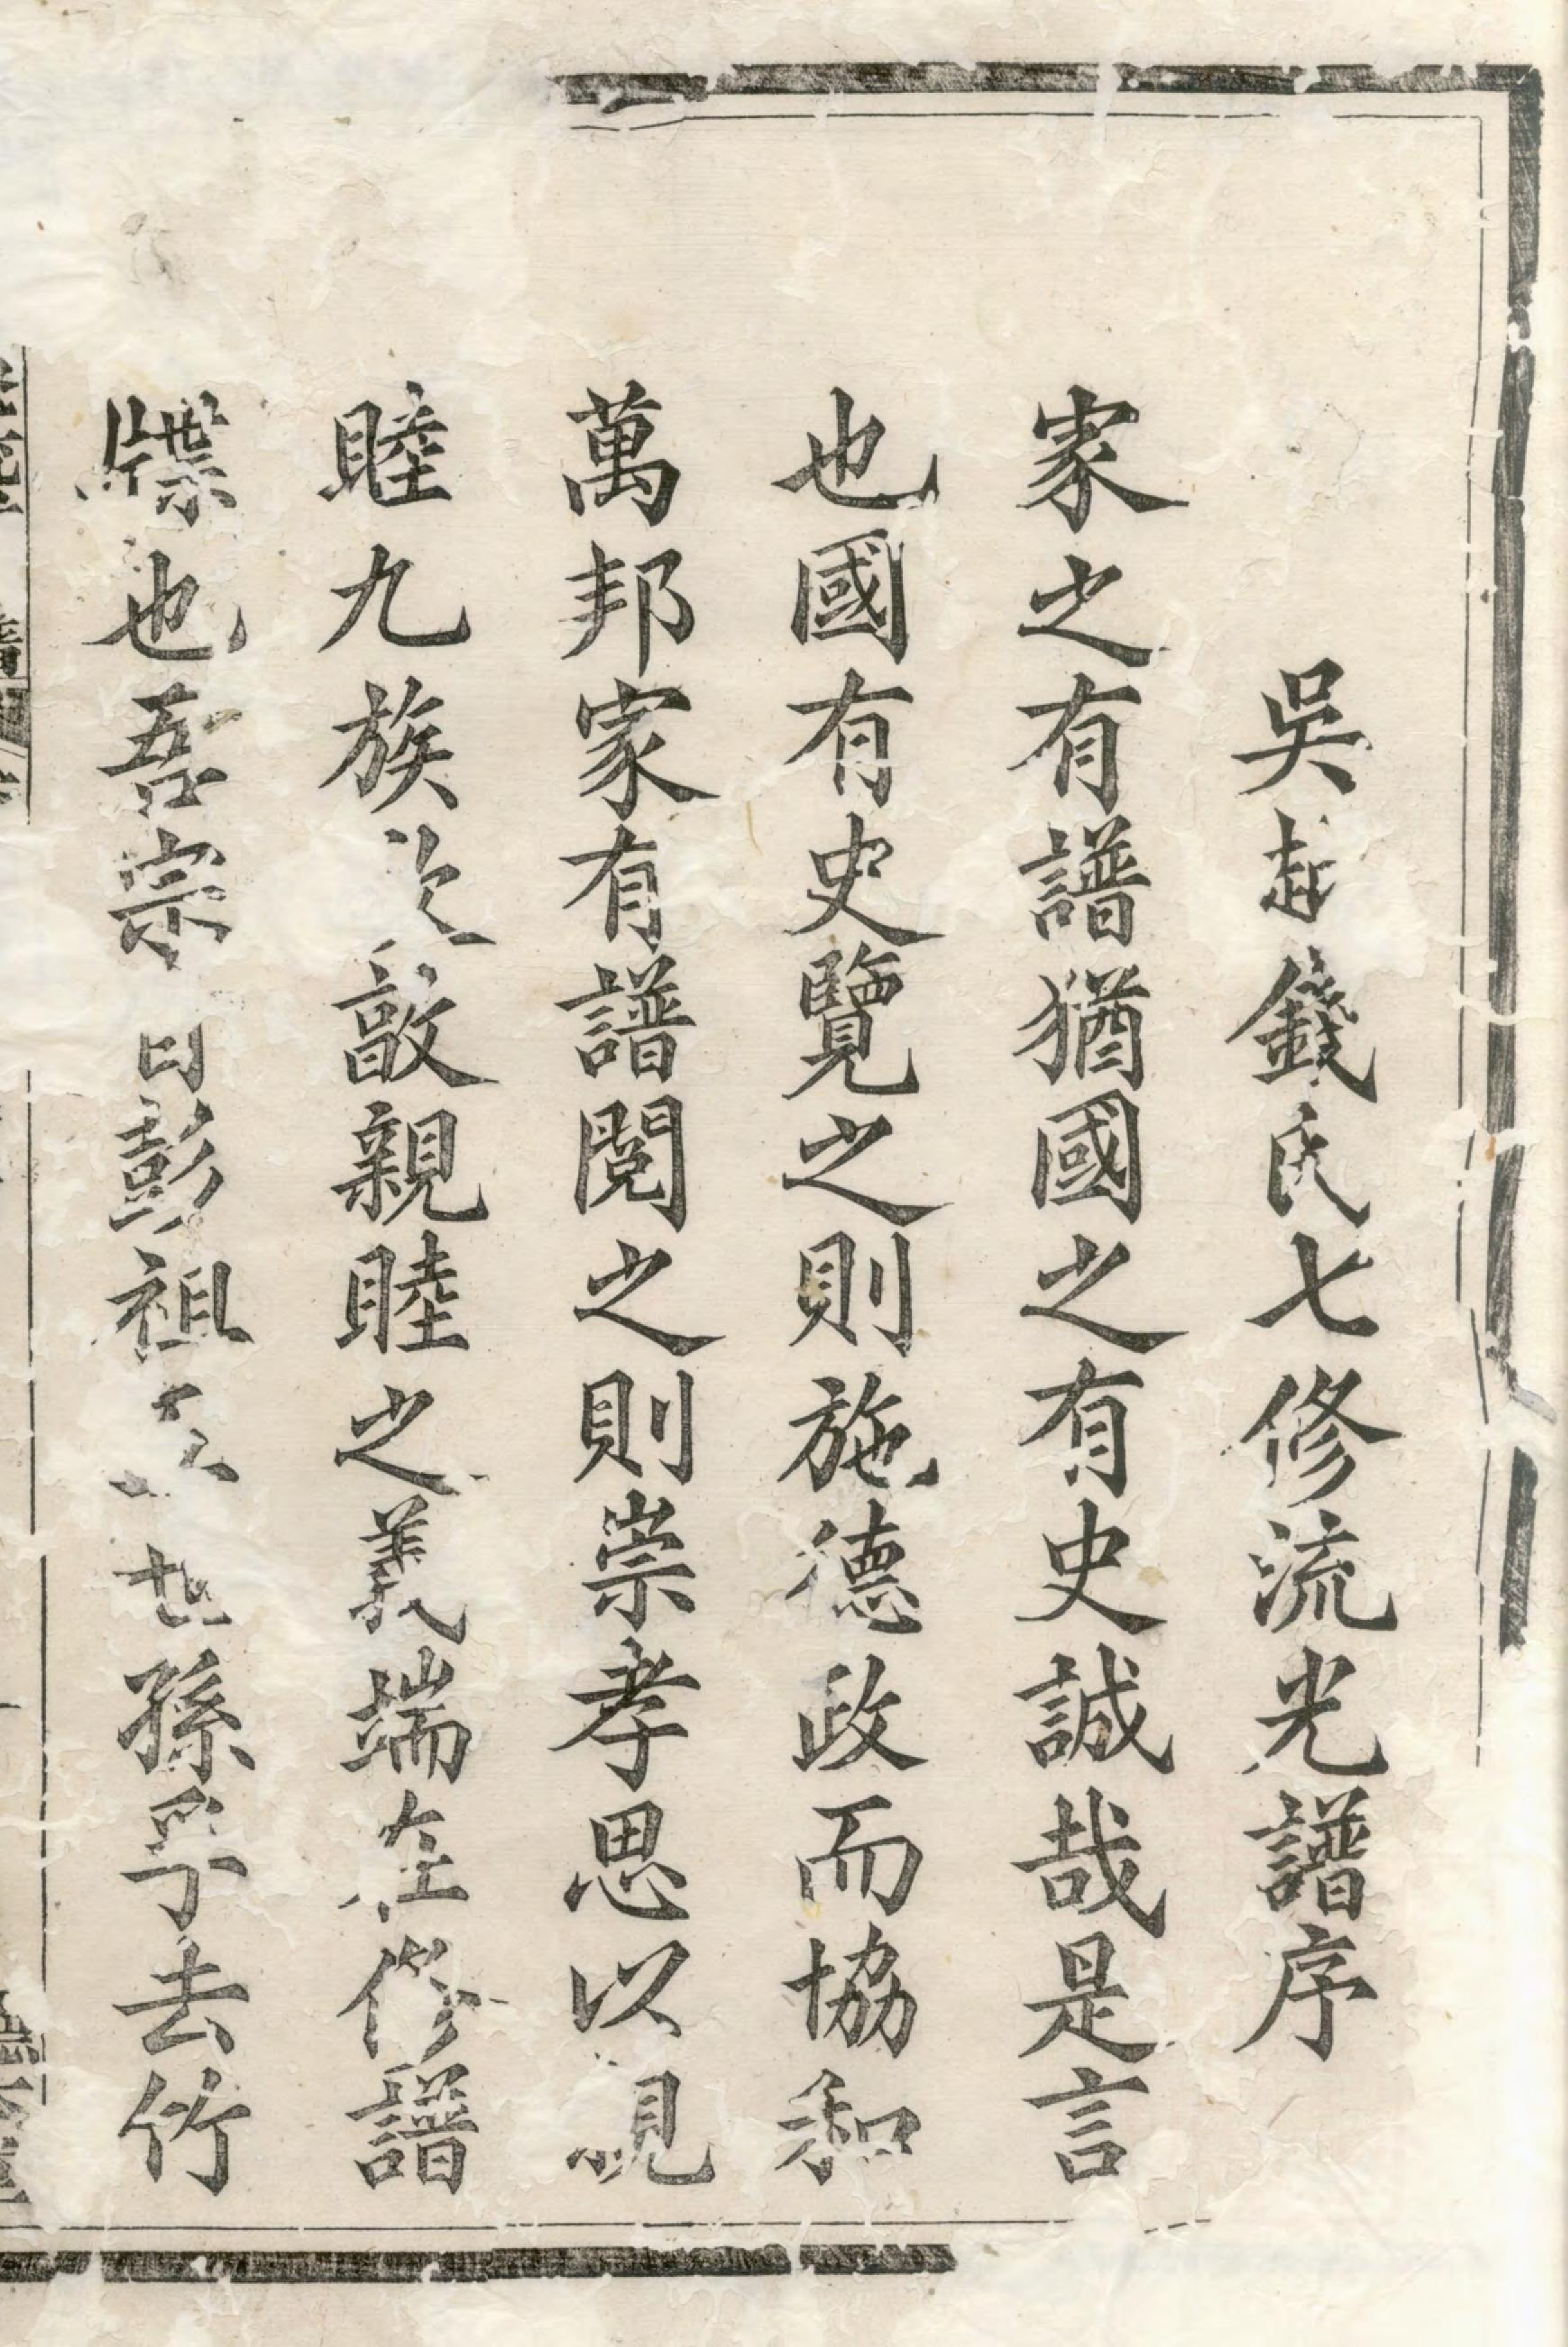 吳越錢氏七修流光譜序
家之有譜猶國之有史誠哉是言
也國有史覽之則施德政而協和
萬邦家有譜閱之則崇孝思以親
睦九族然敦親睦之義端在修譜
牒也吾宗自彭祖公世孫孚去竹